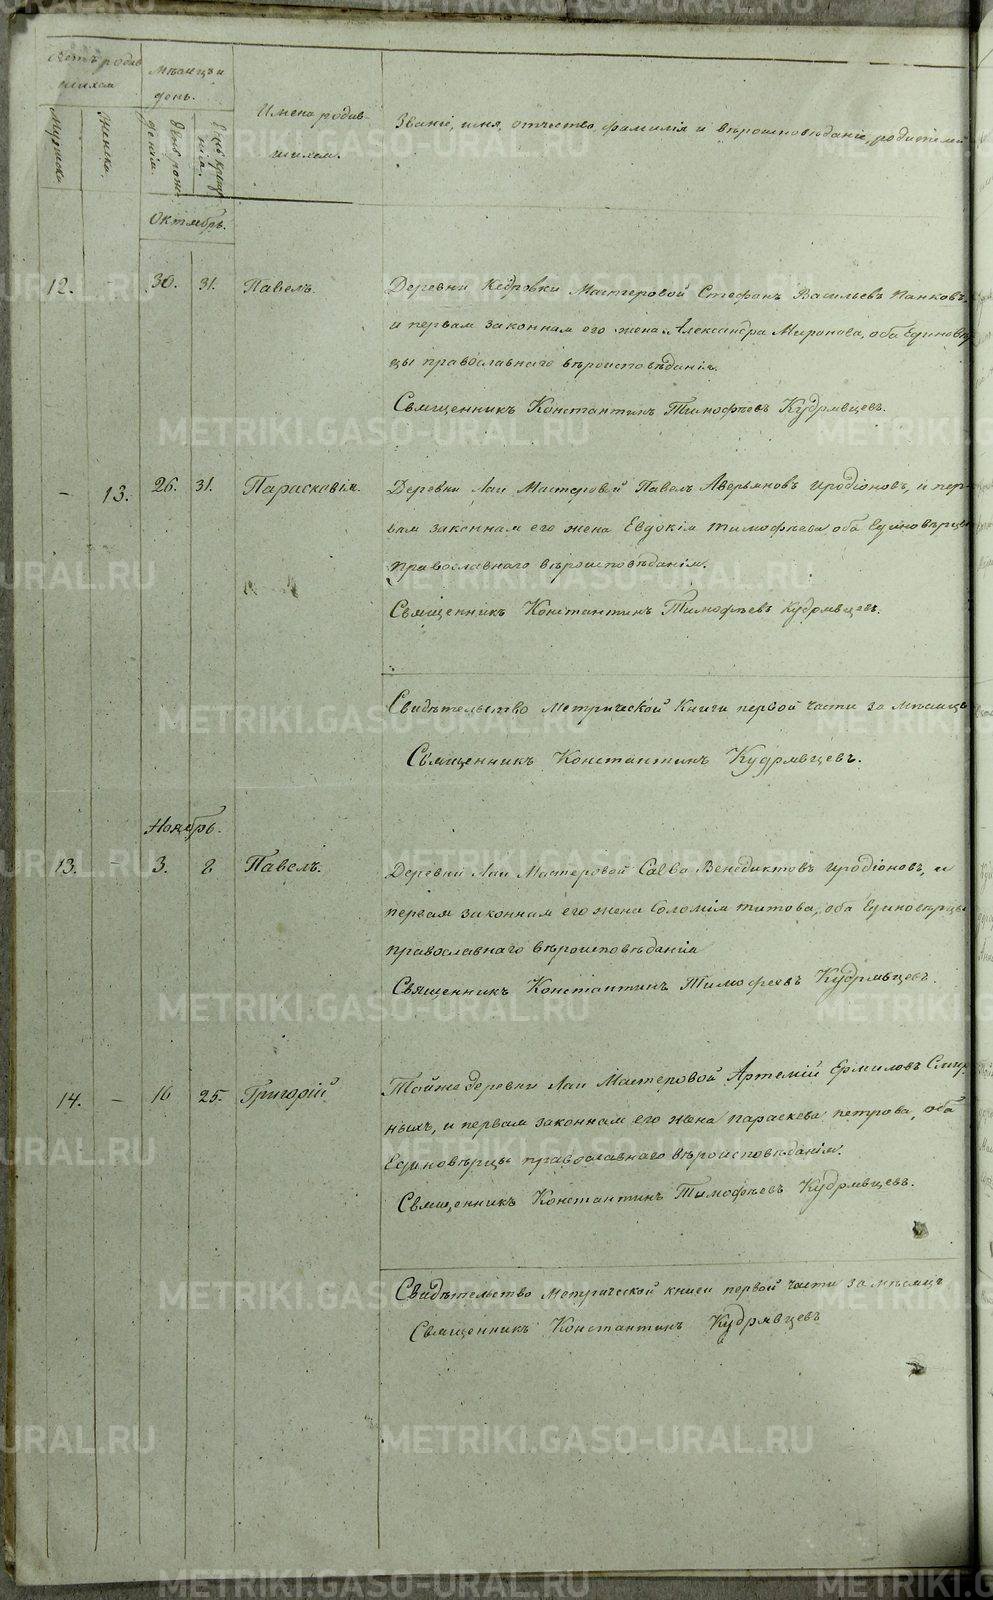 Счетъ родив
шихся
Мѣсяцъ и
день.
Мужска
Женска.
День рож
денія.
День крещ
енія.
Имена родив-
шихся.
Званіе, имя, отчество, фамилія и вѣроисповѣданіе родителей
Октябрь.
12. - 30. 31. Павелъ.
Деревни Кедровки Мастеровой Стефанъ Васильевъ Панковъ,
и первая законная его жена Александра Миронова, оба Единовѣр
цы православнаго вѣроисповѣданія.
Священникъ Константинъ Тимофѣевъ Кудрявцевъ.
- 13. 26. 31. Параскевія.
Деревни Лаи Мастеровой Павелъ Аверьяновъ Иродіоновъ, и пер-
вая законная его жена Евдокія Тимофѣева оба Единовѣрцы
Православнаго вѣроисповѣданія.
Священникъ Константинъ Тимофѣевъ Кудрявцевъ.
Свидѣтельство Метрической Книги первой части за мѣсяцъ
Священникъ Константинъ Кудрявцевъ.
Ноябрь.
13. - 3. 8 Павелъ.
Деревни Лаи Мастеровой Савва Венедиктовъ Иродіоновъ, и
первая законная его жена Соломія Титова, оба Единовѣрцы
православнаго вѣроисповѣданія
Священникъ Константинъ Тимофеевъ Кудрявцевъ.
14. - 16 25. Григорій
Тойже деревни Лаи Мастеровой Артемій Ермиловъ
ныхъ, и первая законная его жена параскева петрова, оба
Единовѣрцы православнаго вѣроисповѣданія.
Священникъ Константинъ Тимофѣевъ Кудрявцевъ.
Свидѣтельство метрической книги первой части за мѣсяцъ
Священникъ Константинъ Кудрявцевъ
METRIKI.GASO-URAL.RU